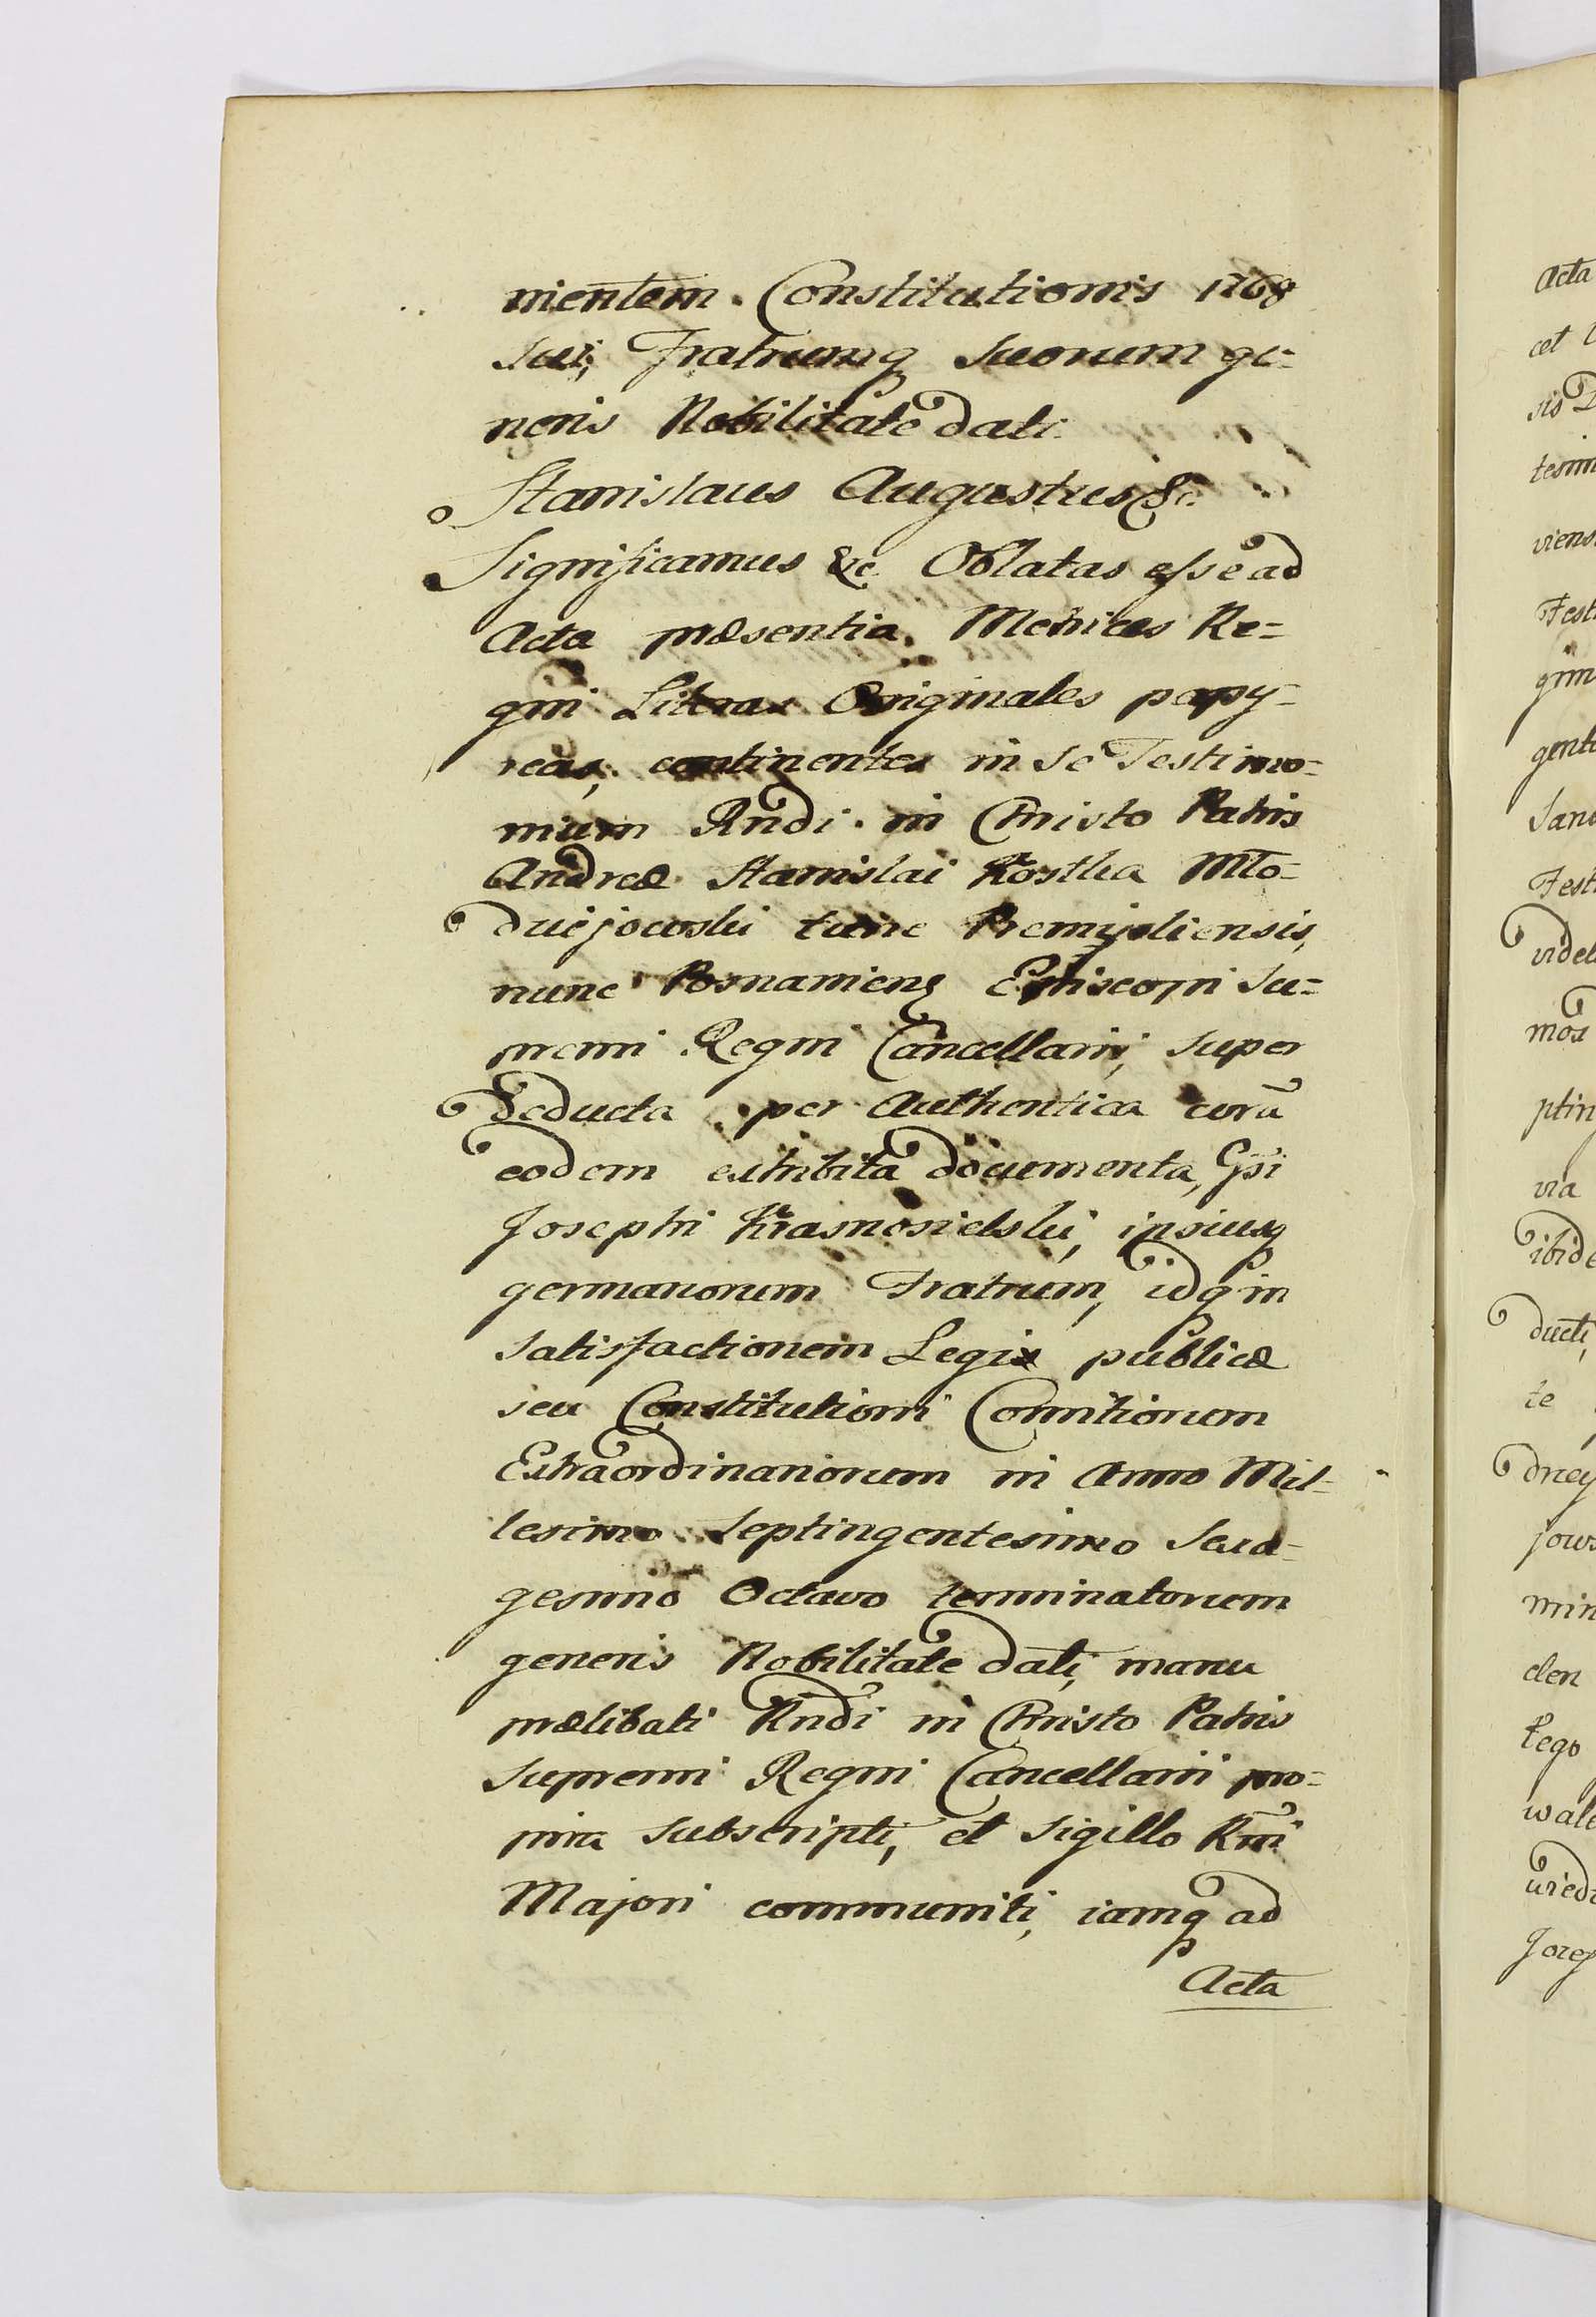 nientem Constitutionis 1768
sui, Fratrumq suorum ge-
neris Nobilitate dati.
Stanislaus Augustus &c.
Significamus &c. Oblatas esse ad
Acta præsentia Metrices Re-
gni Literas Originales papy-
reas, continentes in se Testimo-
nium Rndi in Christo Patris
Andreæ Stanislai Kostka Mło-
dziejowski tunc Premysliensis,
nunc Posnaniens Episcopi Su-
premi Regni Cancellarii, super
deducta per Authentica corā
eodem exhibita documenta, Gsi
Josephi Krasnosielski, ipsiusq
germanorum Fratrum, idq in
satisfactionem Legis publicæ
seu Constitutioni Comitiorum
Extraordinariorum in Anno Mil-
lesimo Septingentesimo Sexa-
gesimo Octavo terminatorum
generis Nobilitate dati, manu
prælibati Rndi in Christo Patris
Supremi Regni Cancellarii pro-
pria subscripti, et sigillo Rni
Majori communiti, iamq ad
Acta
Acta
cet
sis
tesim
viens
Test
gim
gent
Sanc
Test
videl
mos
ptin
via
ibide
ducti,
te
dney
jows
min
clen
Lego
wale
wied
Jozef